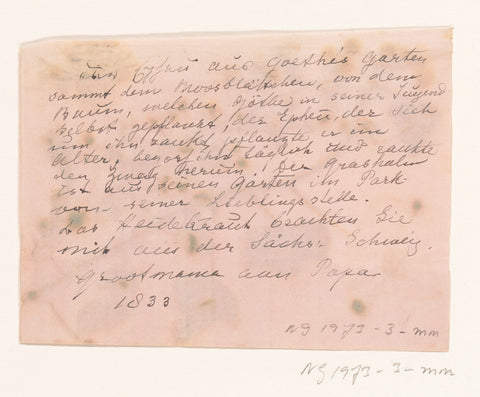 Epheu aus Goethe's Garten
sammt dem Moosblättchen, von dem
Baum, welchen Göthe in seiner Jugend
selbst gepflanzt, der Epheu, der sich
um ihn rankt, pflanzte er im
Alter, begoss ihn täglich und rankte
den Zweig herum. Der Grashalm
ist aus seinem Garten im Park
von seiner Lieblingsstelle.
Das Heidekraut brachten Sie
mit aus der Sächs: Schweiz.
Grootmama aan Papa
1833
NG 1973-3-mm
NG 1973-3-mm